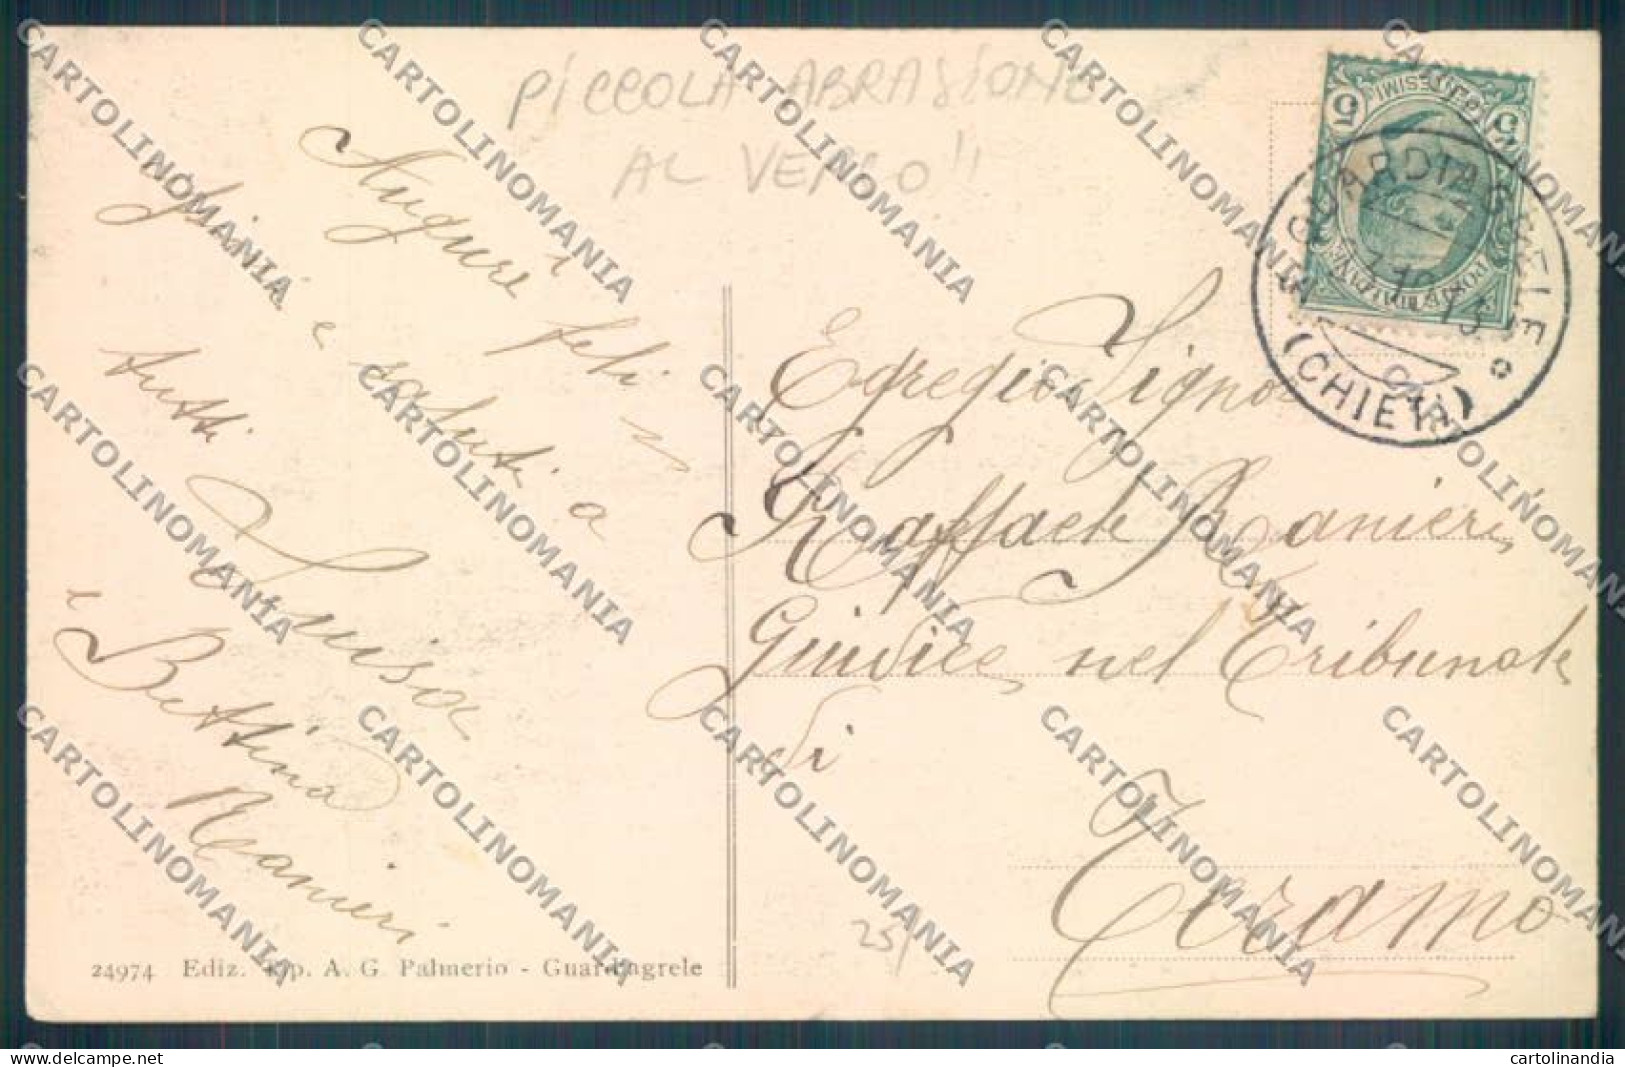 PICCOLA ABRASIONE
AL VERSO!!
Auguri feli
cissimi e saluti a
tutti Luisa
e Bettina
Ranieri
CENTESIMI
5 5
POSTE ITALIANE
GUARDIAGRELE
(CHIETI)
Egregio Signor
Raffaele Ranieri
Giudice nel Tribunale
di
Teramo
25
24974 Ediz. Tip. A. G. Palmerio - Guardiagrele
CARTOLINOMANIA
cartolinandia